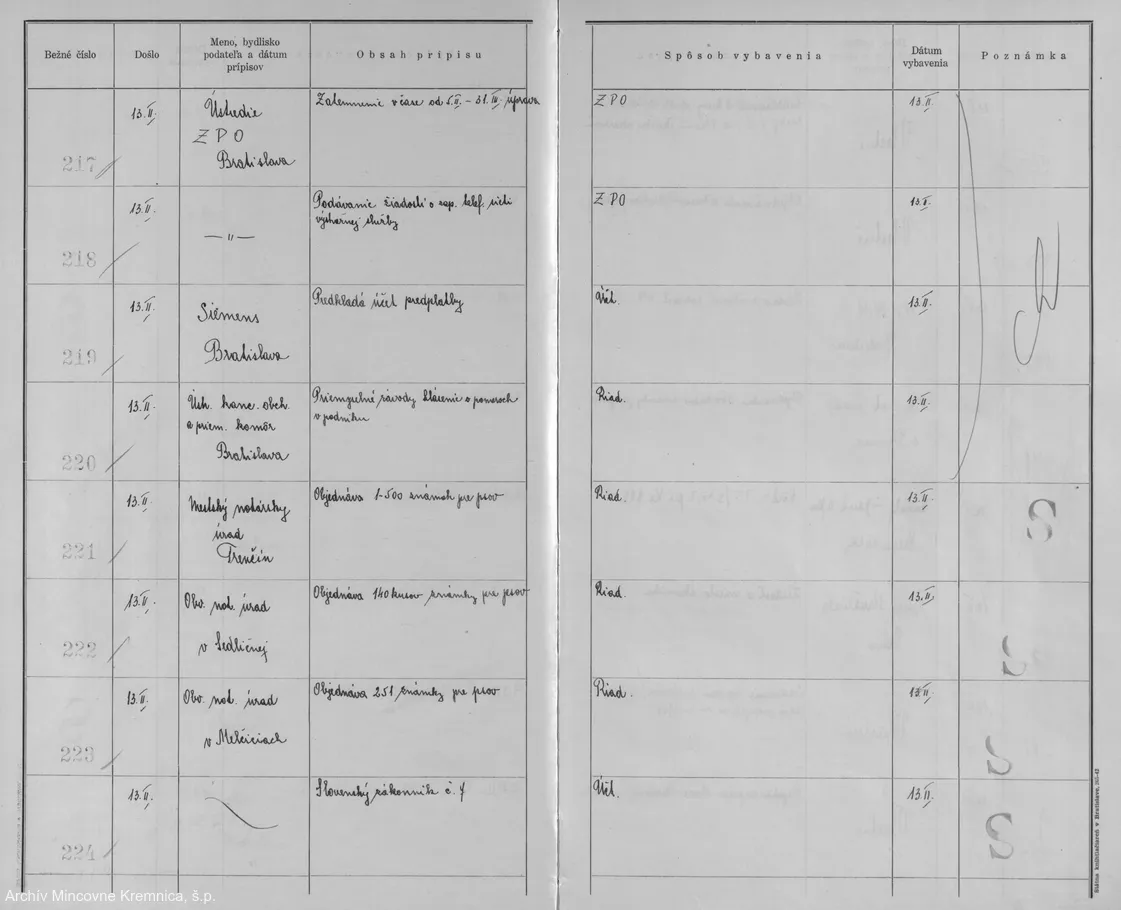 Bežné číslo
Došlo
Meno, bydlisko
podateľa a dátum
prípisov
Obsah prípisu
Spôsob vybavenia
Dátum
vybavenia
Poznámka
217
13.II.
Ústredie
ZPO
Bratislava
Zatemnenie v čase od 5.II. – 31.III. úprava
ZPO
13.II.
218
13.II.
—"—
Podávanie žiadostí o zap. telef. sieti
výstražnej služby
ZPO
13.II.
219
13.II.
Siemens
Bratislava
Predkladá účet predplatby
Úèt.
13.II.
220
13.II.
Ústr. kanc. obch.
a priem. komôr
Bratislava
Priemyselné závody hlásenie o pomeroch
v podniku
Riad.
13.II.
221
13.II.
Mestský notársky
úrad
Trenčín
Objednáva 1-500 známok pre psov
Riad.
13.II.
222
13.II.
Obv. not. úrad
v Sedličnej
Objednáva 140 kusov známky pre psov
Riad.
13.II.
223
13.II.
Obv. not. úrad
v Melčiciach
Objednáva 251 známky pre psov
Riad.
13.II.
224
13.II.
Slovenský zákonník č. 7
Účt.
13.II.
Archív Mincovne Kremnica, š.p.